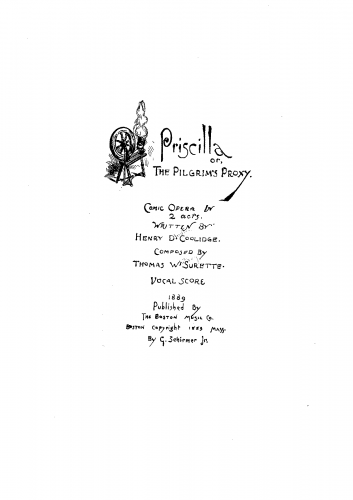 Priscilla
or,
THE PILGRIM'S PROXY.
COMIC OPERA IN
2 ACTS.
WRITTEN BY
HENRY D. COOLIDGE.
COMPOSED BY
THOMAS W. SURETTE.
VOCAL SCORE
1889
Published By
THE BOSTON MUSIC Co.
BOSTON Copyright 1889 MASS.
By G. Schirmer Jr.